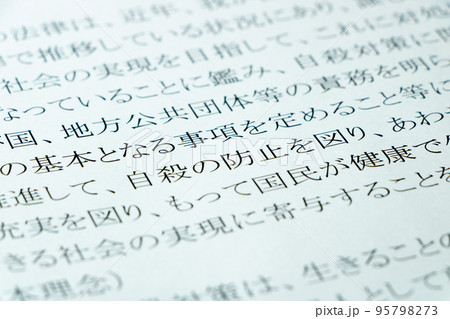 法律は、近年、我が
で推移している状況にあり、
社会の実現を目指して、これに対処
なっていることに鑑み、自殺対策に関
国、地方公共団体等の責務を明ら
の基本となる事項を定めること等に
推進して、自殺の防止を図り、あわ
充実を図り、もって国民が健康で
きる社会の実現に寄与することを
本理念)
対策は、生きることの
pixta.jp - 95798273